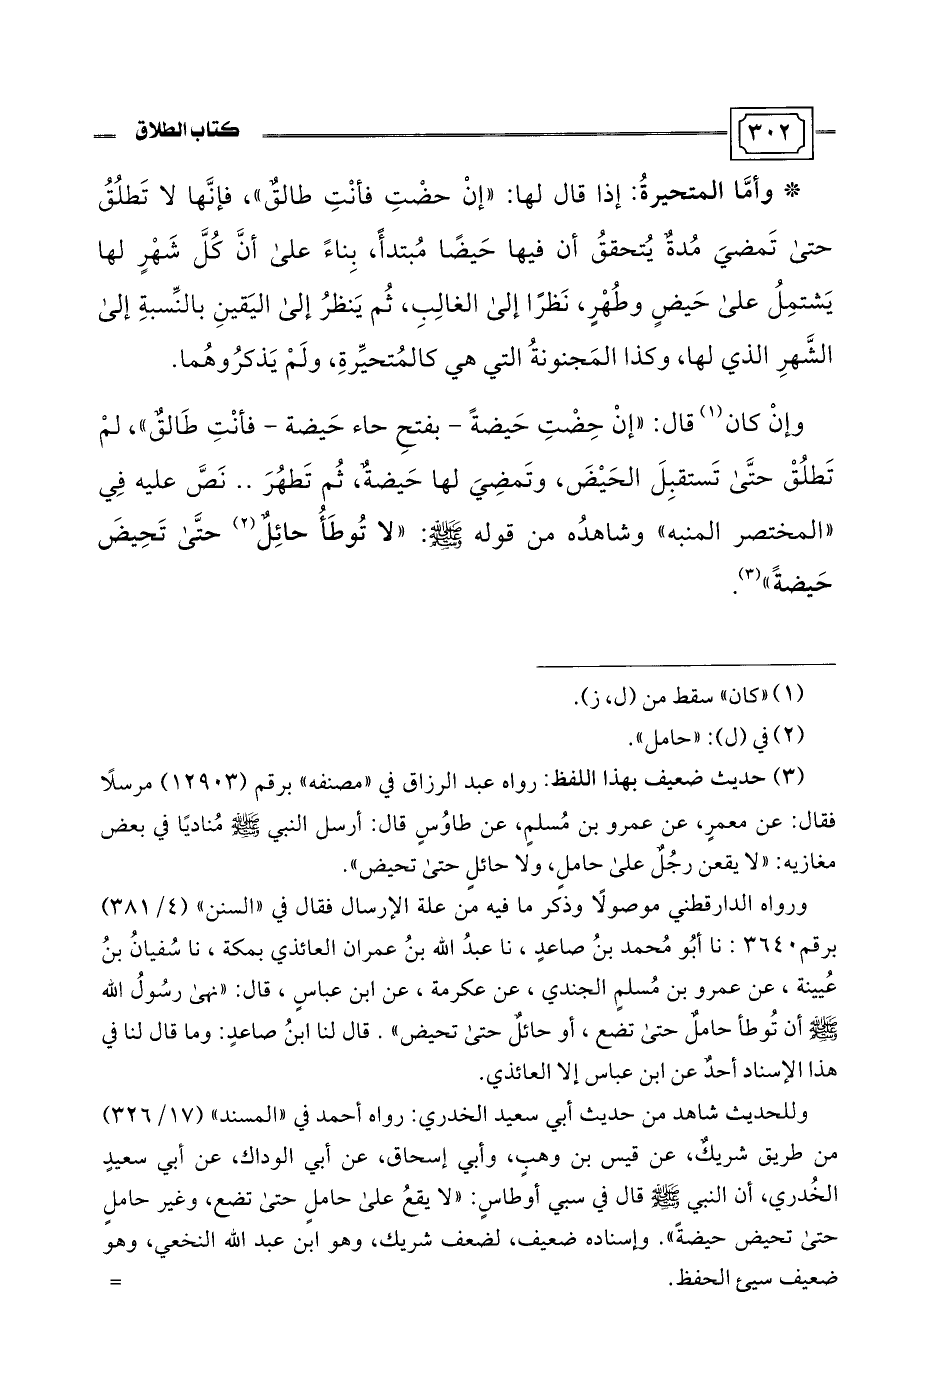 ٣٠٢ كتاب الطلاق
* وأمَّا المتحيرةُ: إذا قال لها: «إنْ حضْتِ فأنْتِ طالقٌ»، فإنَّها لا تَطلُقُ
حتىٰ تَمضيَ مُدةٌ يُتحققُ أن فيها حَيضًا مُبتدأً، بِناءً علىٰ أنَّ كُلَّ شَهْرٍ لها
يَشتمِلُ علىٰ حَيضٍ وطُهْرٍ، نَظرًا إلىٰ الغالِبِ، ثُم يَنظرُ إلىٰ اليَقينِ بالنِّسبةِ إلىٰ
الشَّهرِ الذي لها، وكذا المَجنونةُ التي هي كالمُتحيِّرةِ، ولَمْ يَذكرُوهُما.
وإنْ كان(١) قال: «إنْ حِضْتِ حَيضةً – بفتحِ حاء حَيضة – فأنْتِ طَالقٌ»، لمْ
تَطلُقْ حتَّىٰ تَستقبِلَ الحَيْضَ، وتَمضِيَ لها حَيضةٌ، ثُم تَطهُرَ .. نَصَّ عليه فِي
«المختصر المنبه» وشاهدُه من قوله ﷺ: «لا تُوطَأُ حائِلٌ(٢) حتَّىٰ تَحِيضَ
حَيضةً»(٣).
(١) «كان» سقط من (ل، ز).
(٢) في (ل): «حامل».
(٣) حديث ضعيف بهذا اللفظ: رواه عبد الرزاق في «مصنفه» برقم (١٢٩٠٣) مرسلًا
فقال: عن معمرٍ، عن عمرو بن مُسلمٍ، عن طاوُسٍ قال: أرسل النبي ﷺ مُناديًا في بعض
مغازيه: «لا يقعن رجُلٌ علىٰ حاملٍ، ولا حائلٍ حتىٰ تحيض».
ورواه الدارقطني موصولًا وذكر ما فيه من علة الإرسال فقال في «السنن» (٤/ ٣٨١)
برقم٣٦٤٠ : نا أبُو مُحمد بنُ صاعدٍ ، نا عبدُ الله بنُ عمران العائذي بمكة ، نا سُفيانُ بنُ
عُيينة ، عن عمرو بن مُسلمٍ الجندي ، عن عكرمة ، عن ابن عباسٍ ، قال: «نهىٰ رسُولُ الله
ﷺ أن تُوطأ حاملٌ حتىٰ تضع ، أو حائلٌ حتىٰ تحيض» . قال لنا ابنُ صاعدٍ: وما قال لنا في
هذا الإسناد أحدٌ عن ابن عباس إلا العائذي.
وللحديث شاهد من حديث أبي سعيد الخدري: رواه أحمد في «المسند» (١٧/ ٣٢٦)
من طريق شريكٌ، عن قيس بن وهبٍ، وأبي إسحاق، عن أبي الوداك، عن أبي سعيدٍ
الخُدري، أن النبي ﷺ قال في سبي أوطاسٍ: «لا يقعُ علىٰ حاملٍ حتىٰ تضع، وغير حاملٍ
حتىٰ تحيض حيضةً». وإسناده ضعيف، لضعف شريك، وهو ابن عبد الله النخعي، وهو
ضعيف سيئ الحفظ. =